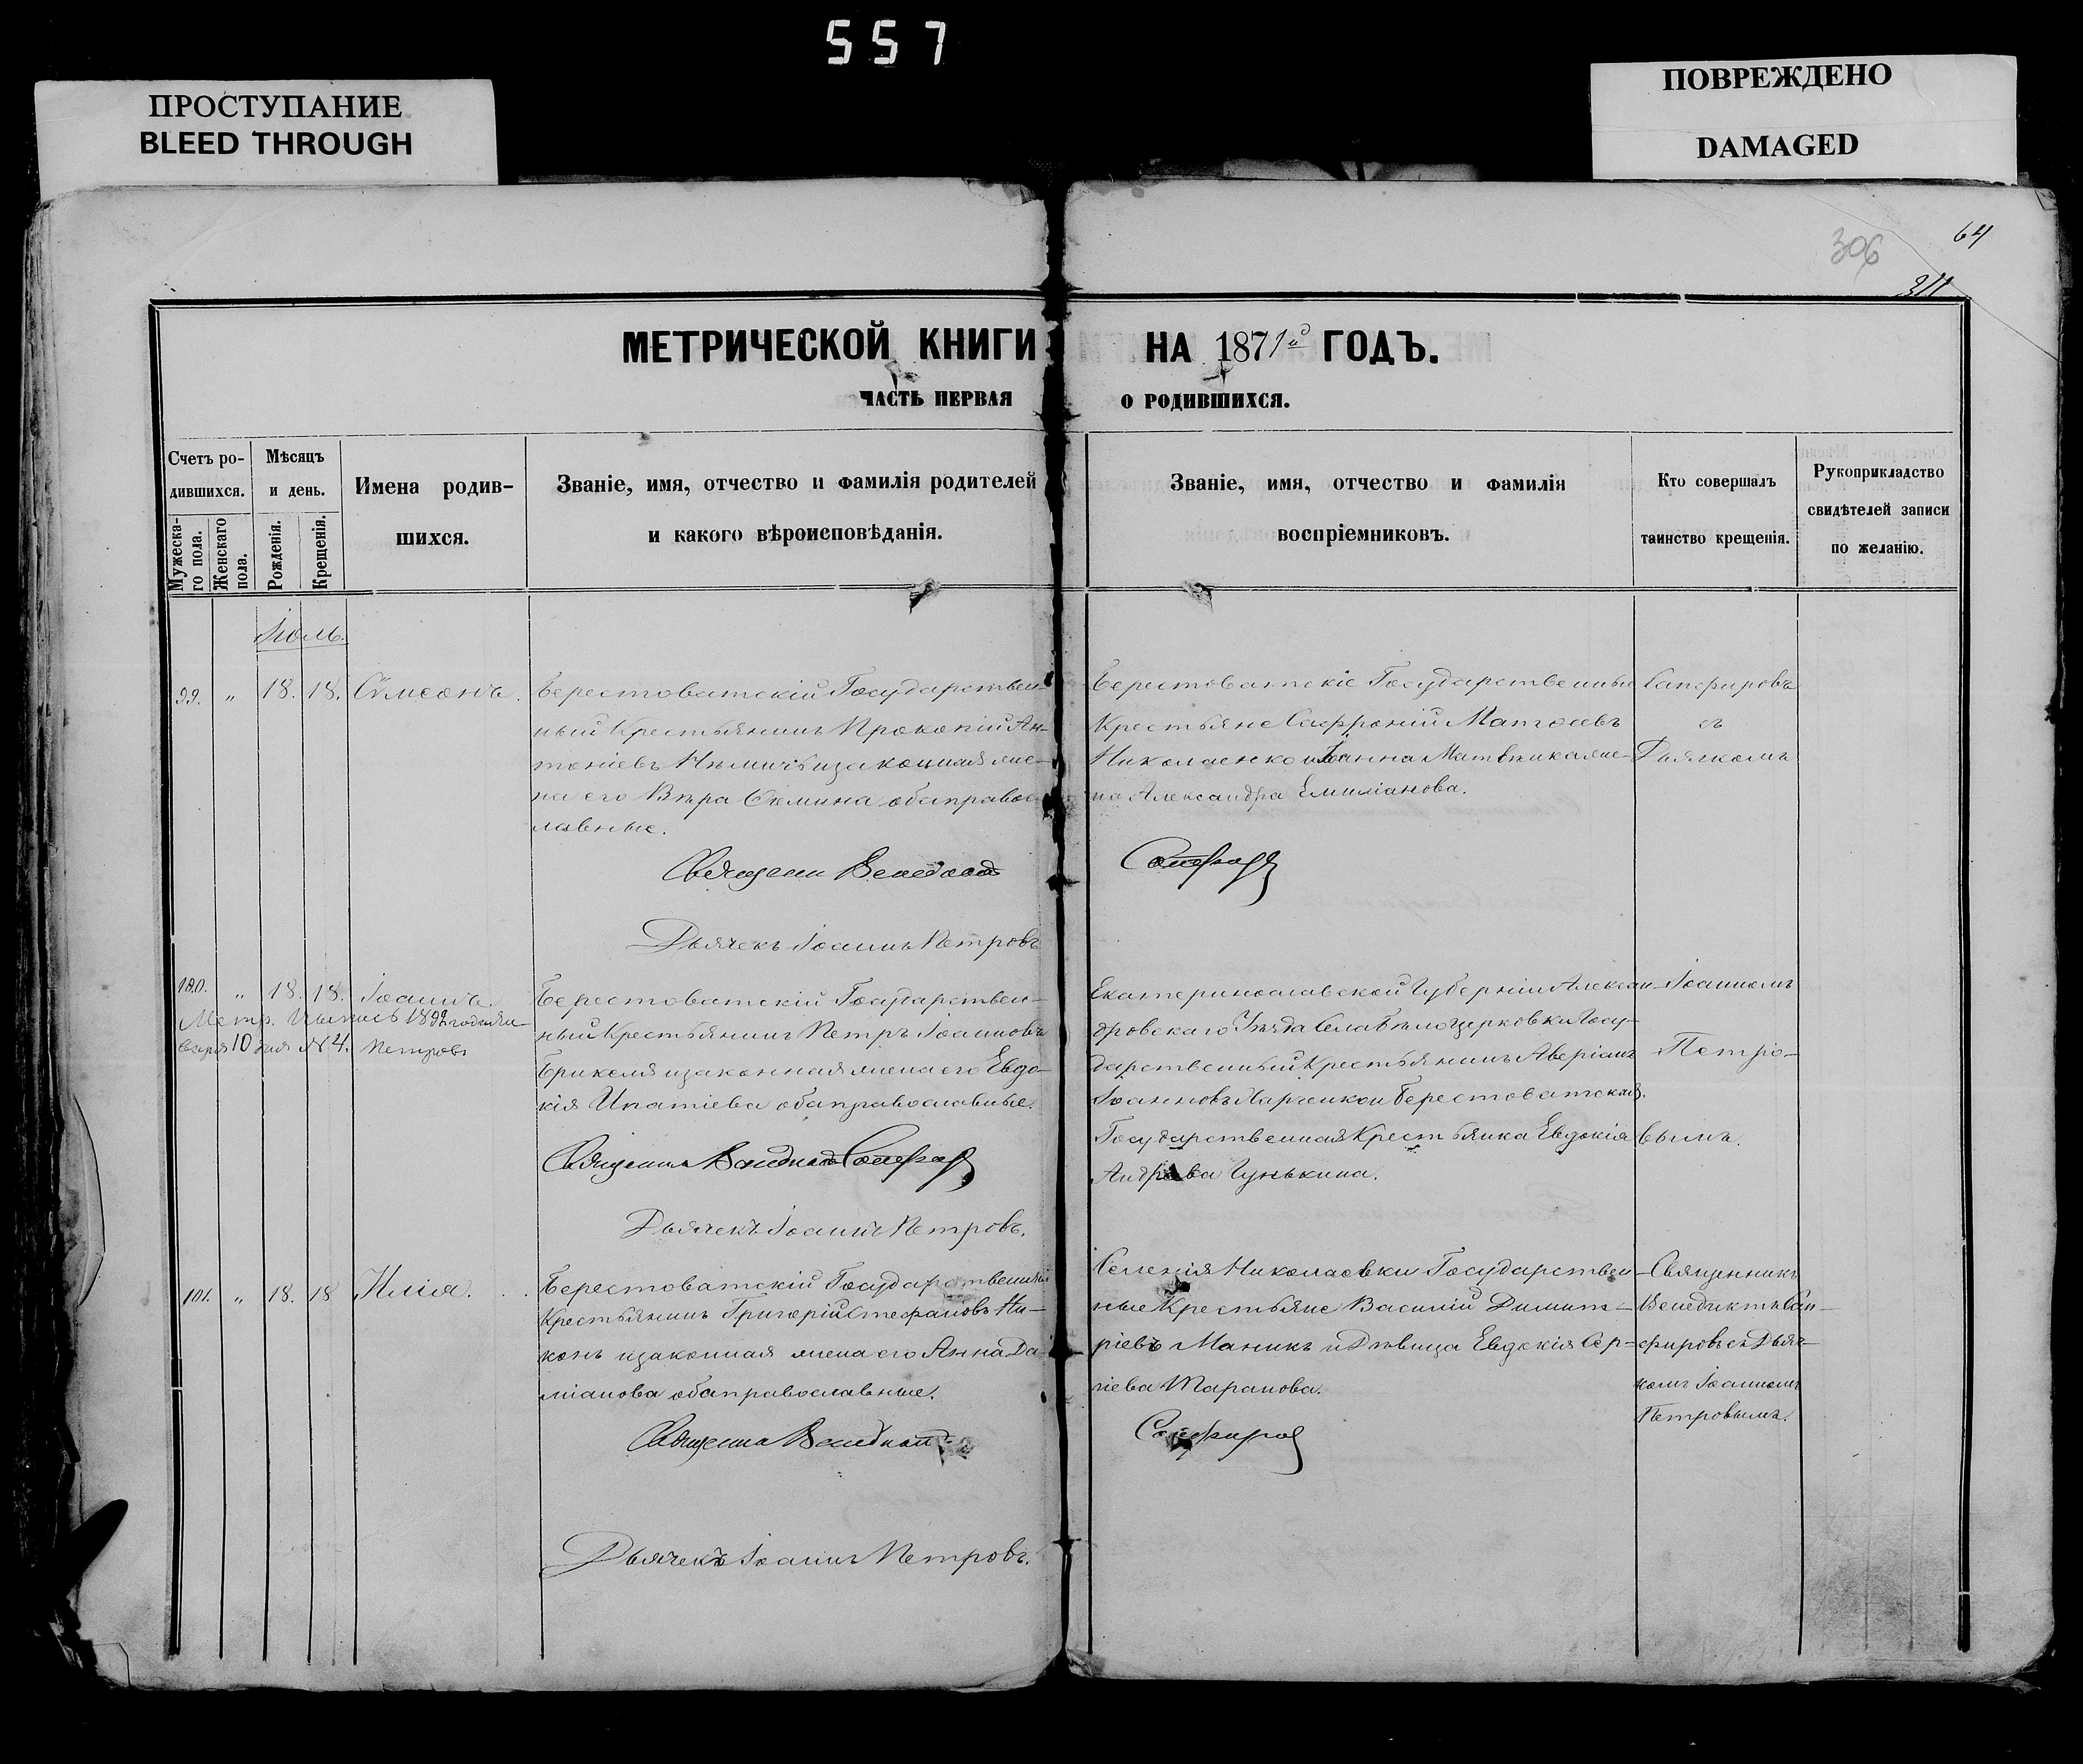 557
ПРОСТУПАНИЕ
BLEED THROUGH
ПОВРЕЖДЕНО
DAMAGED
64
306
311
МЕТРИЧЕСКОЙ КНИГИ НА 1871й ГОДЪ.
ЧАСТЬ ПЕРВАЯ О РОДИВШИХСЯ.
Счетъ ро-
дившихся.
Мужеска-
го пола.
Женскаго
пола.
Мѣсяцъ
и день.
Рожденія.
Крещенія.
Имена родив-
шихся.
Званіе, имя, отчество и фамилія родителей
и какого вѣроисповѣданія.
Званіе, имя, отчество и фамилія
воспріемниковъ.
Кто совершалъ
таинство крещенія.
Рукоприкладство
свидѣтелей записи
по желанію.
Іюль.
99. " 18. 18. Сѵмеонъ.
Берестоватскій Государствен-
ный Крестьянинъ Прокопій Ан-
тоніевъ и законная же-
на его Вѣра обаправос-
лавные.
Священни Венедикт
Дьячекъ Іоаннъ Петровъ
Берестоватскіе Государственные
Крестьяне Сафроній Матѳеевъ
Николаенко и Іоанна жe-
на Александра Емиліанова.
Сапфиров
Сапфировъ
съ
Дьячкомъ
100. " 18. 18. Іоаннъ.
Метр. Выпись 1892 года Ян-
варя 10 дня № 4. Петровъ
Берестоватскій Государствен-
ный Крестьянинъ Петръ Іоанновъ
Брикеля изаконная жена его Евдо-
кія Ипатіева обаправославные.
Священни Венедикт Сапфиров
Дьячекъ Іоаннъ Петровъ.
Екатеринославской Губерніи Алексан-
дровскаго Уѣзда Села Бѣлоцерковки Госу-
дарственный Крестьянинъ Аверіанъ
Іоанновъ Харченко и Берестоватская
Государственная Крестьянка Евдокія
Андреева Гунькина.
Іоанномъ
Петро-
вымъ.
101. " 18. 18 Илія.
Берестоватскій Государственный
Крестьянинъ Григорій Стефановъ Ни-
конъ изаконная жена его Анна Да-
міанова обаправославные.
Священни Венедикт
Дьячекъ Іоаннъ Петровъ.
Селенія Николаевки Государствен-
ные Крестьяне Василій Димит-
ріевъ Маникъ и Дѣвица Евдокія Сер-
гіева Шарапова.
Сапфиров
Священникъ
Венедиктъ Сап-
фировъ съ Дьяч-
комъ Іоанномъ
Петровымъ.